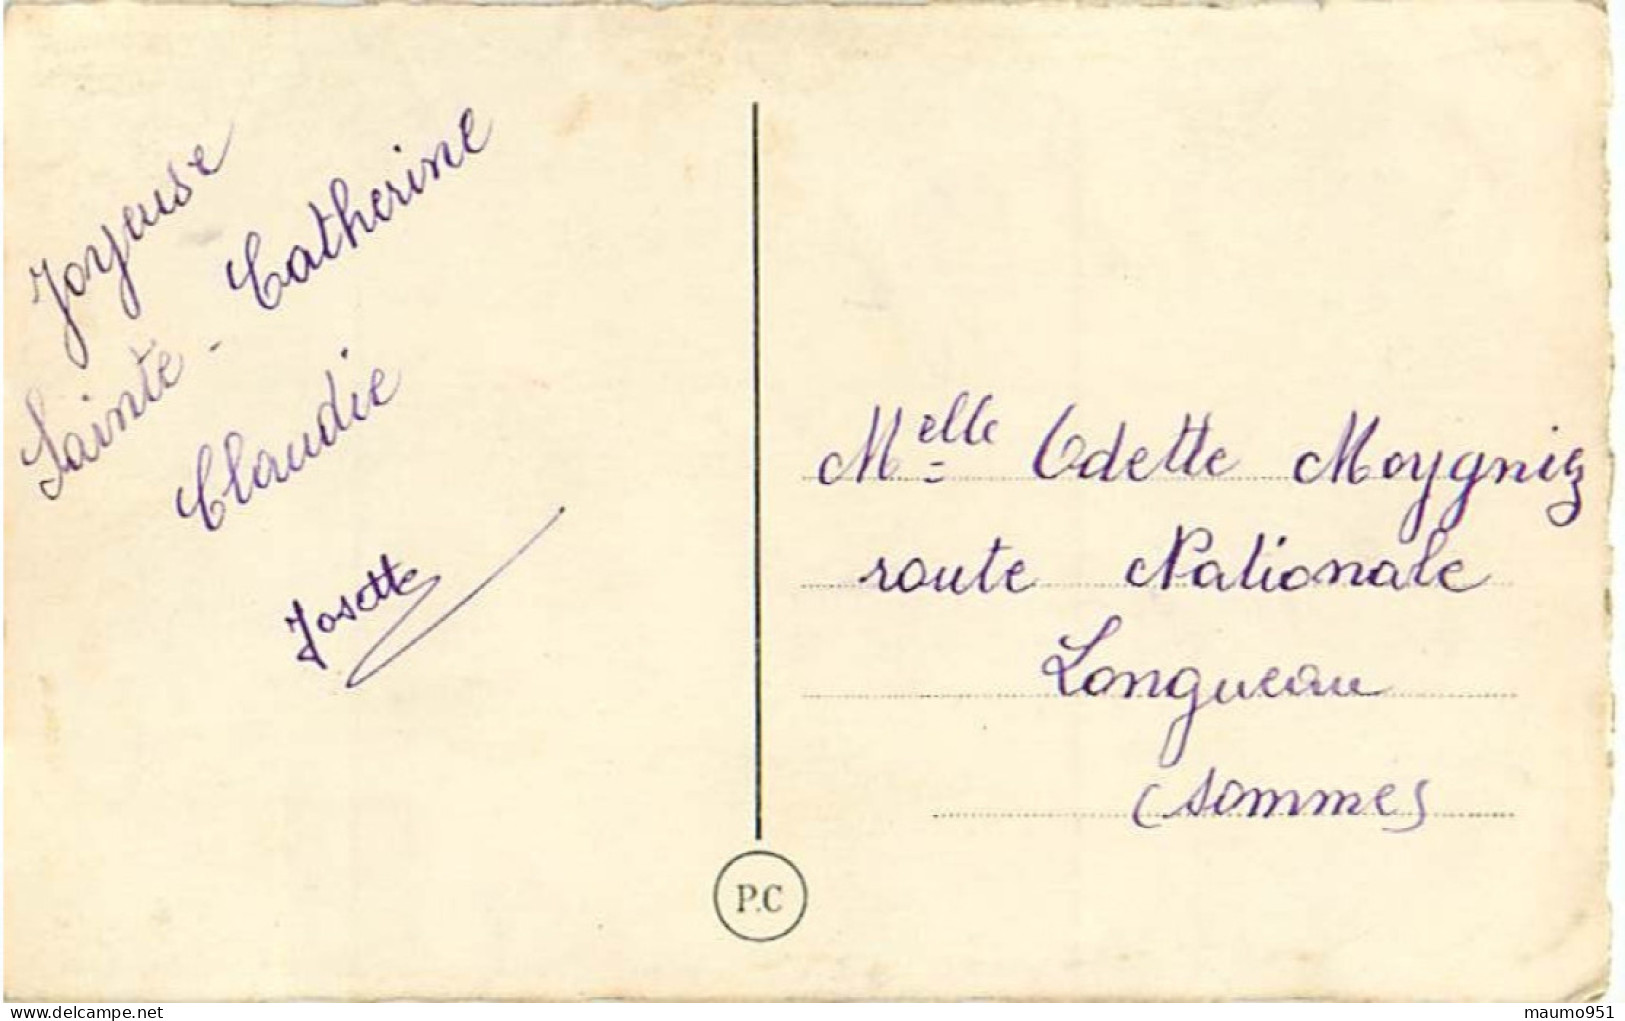 Joyeuse
Sainte - Catherine
Claudie
Josette
Melle Odette Moygniez
route Nationale
Longueau
(Somme)
P.C
delcampe.net
maumo951